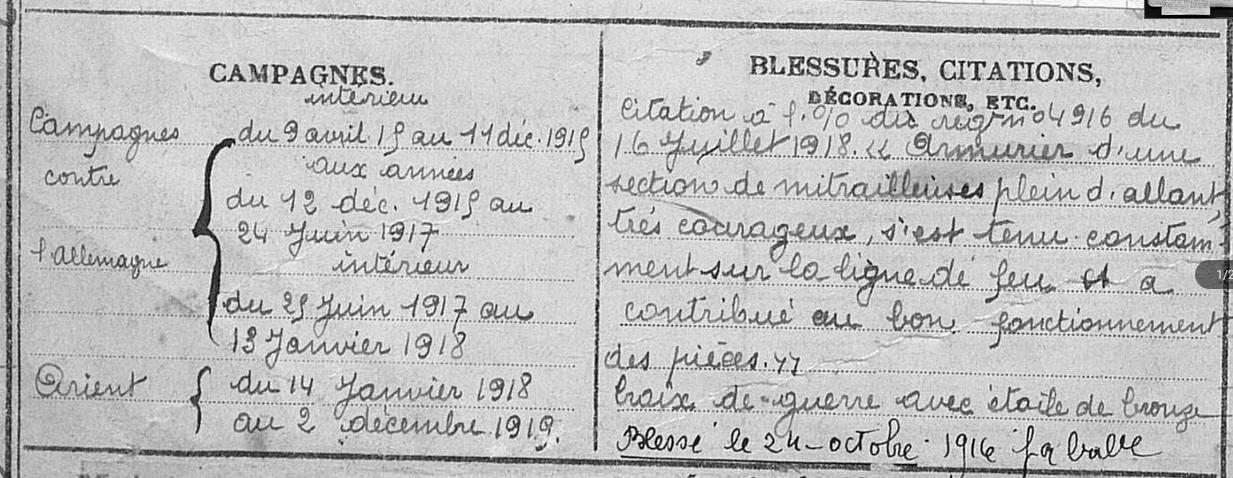 CAMPAGNES.
intérieur
Campagnes
du 9 avril 15 au 11 déc. 1915
aux années
contre
du 12 déc. 1915 au
24 Juin 1917
l'allemagne
intérieur
du 25 Juin 1917 au
13 Janvier 1918
Orient
du 14 Janvier 1918
au 2 décembre 1919.
BLESSURES, CITATIONS,
DÉCORATIONS, ETC.
Citation à l'o/o du regt n° 4916 du
16 Juillet 1918. « Armurier d'une
section de mitrailleuses plein d'allant,
très courageux, s'est tenu constam-
ment sur la ligne de feu et a
contribué au bon fonctionnement
des pièces. »
Croix de guerre avec étoile de bronze
Blessé le 24 octobre 1916 par balle
1/2